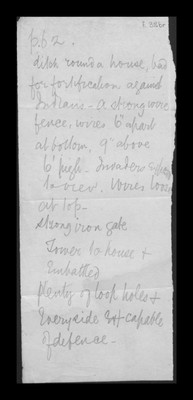 p. 62.
ditch round a house, bad
for fortification against
Indians - a strong wire
fence, wires 6" apart
at bottom, 9" above
6' high - Invaders
to over. Wires
at top -
strong iron gate
Tower to house +
Embattled
plenty of loop holes +
Every side capable
of defence -